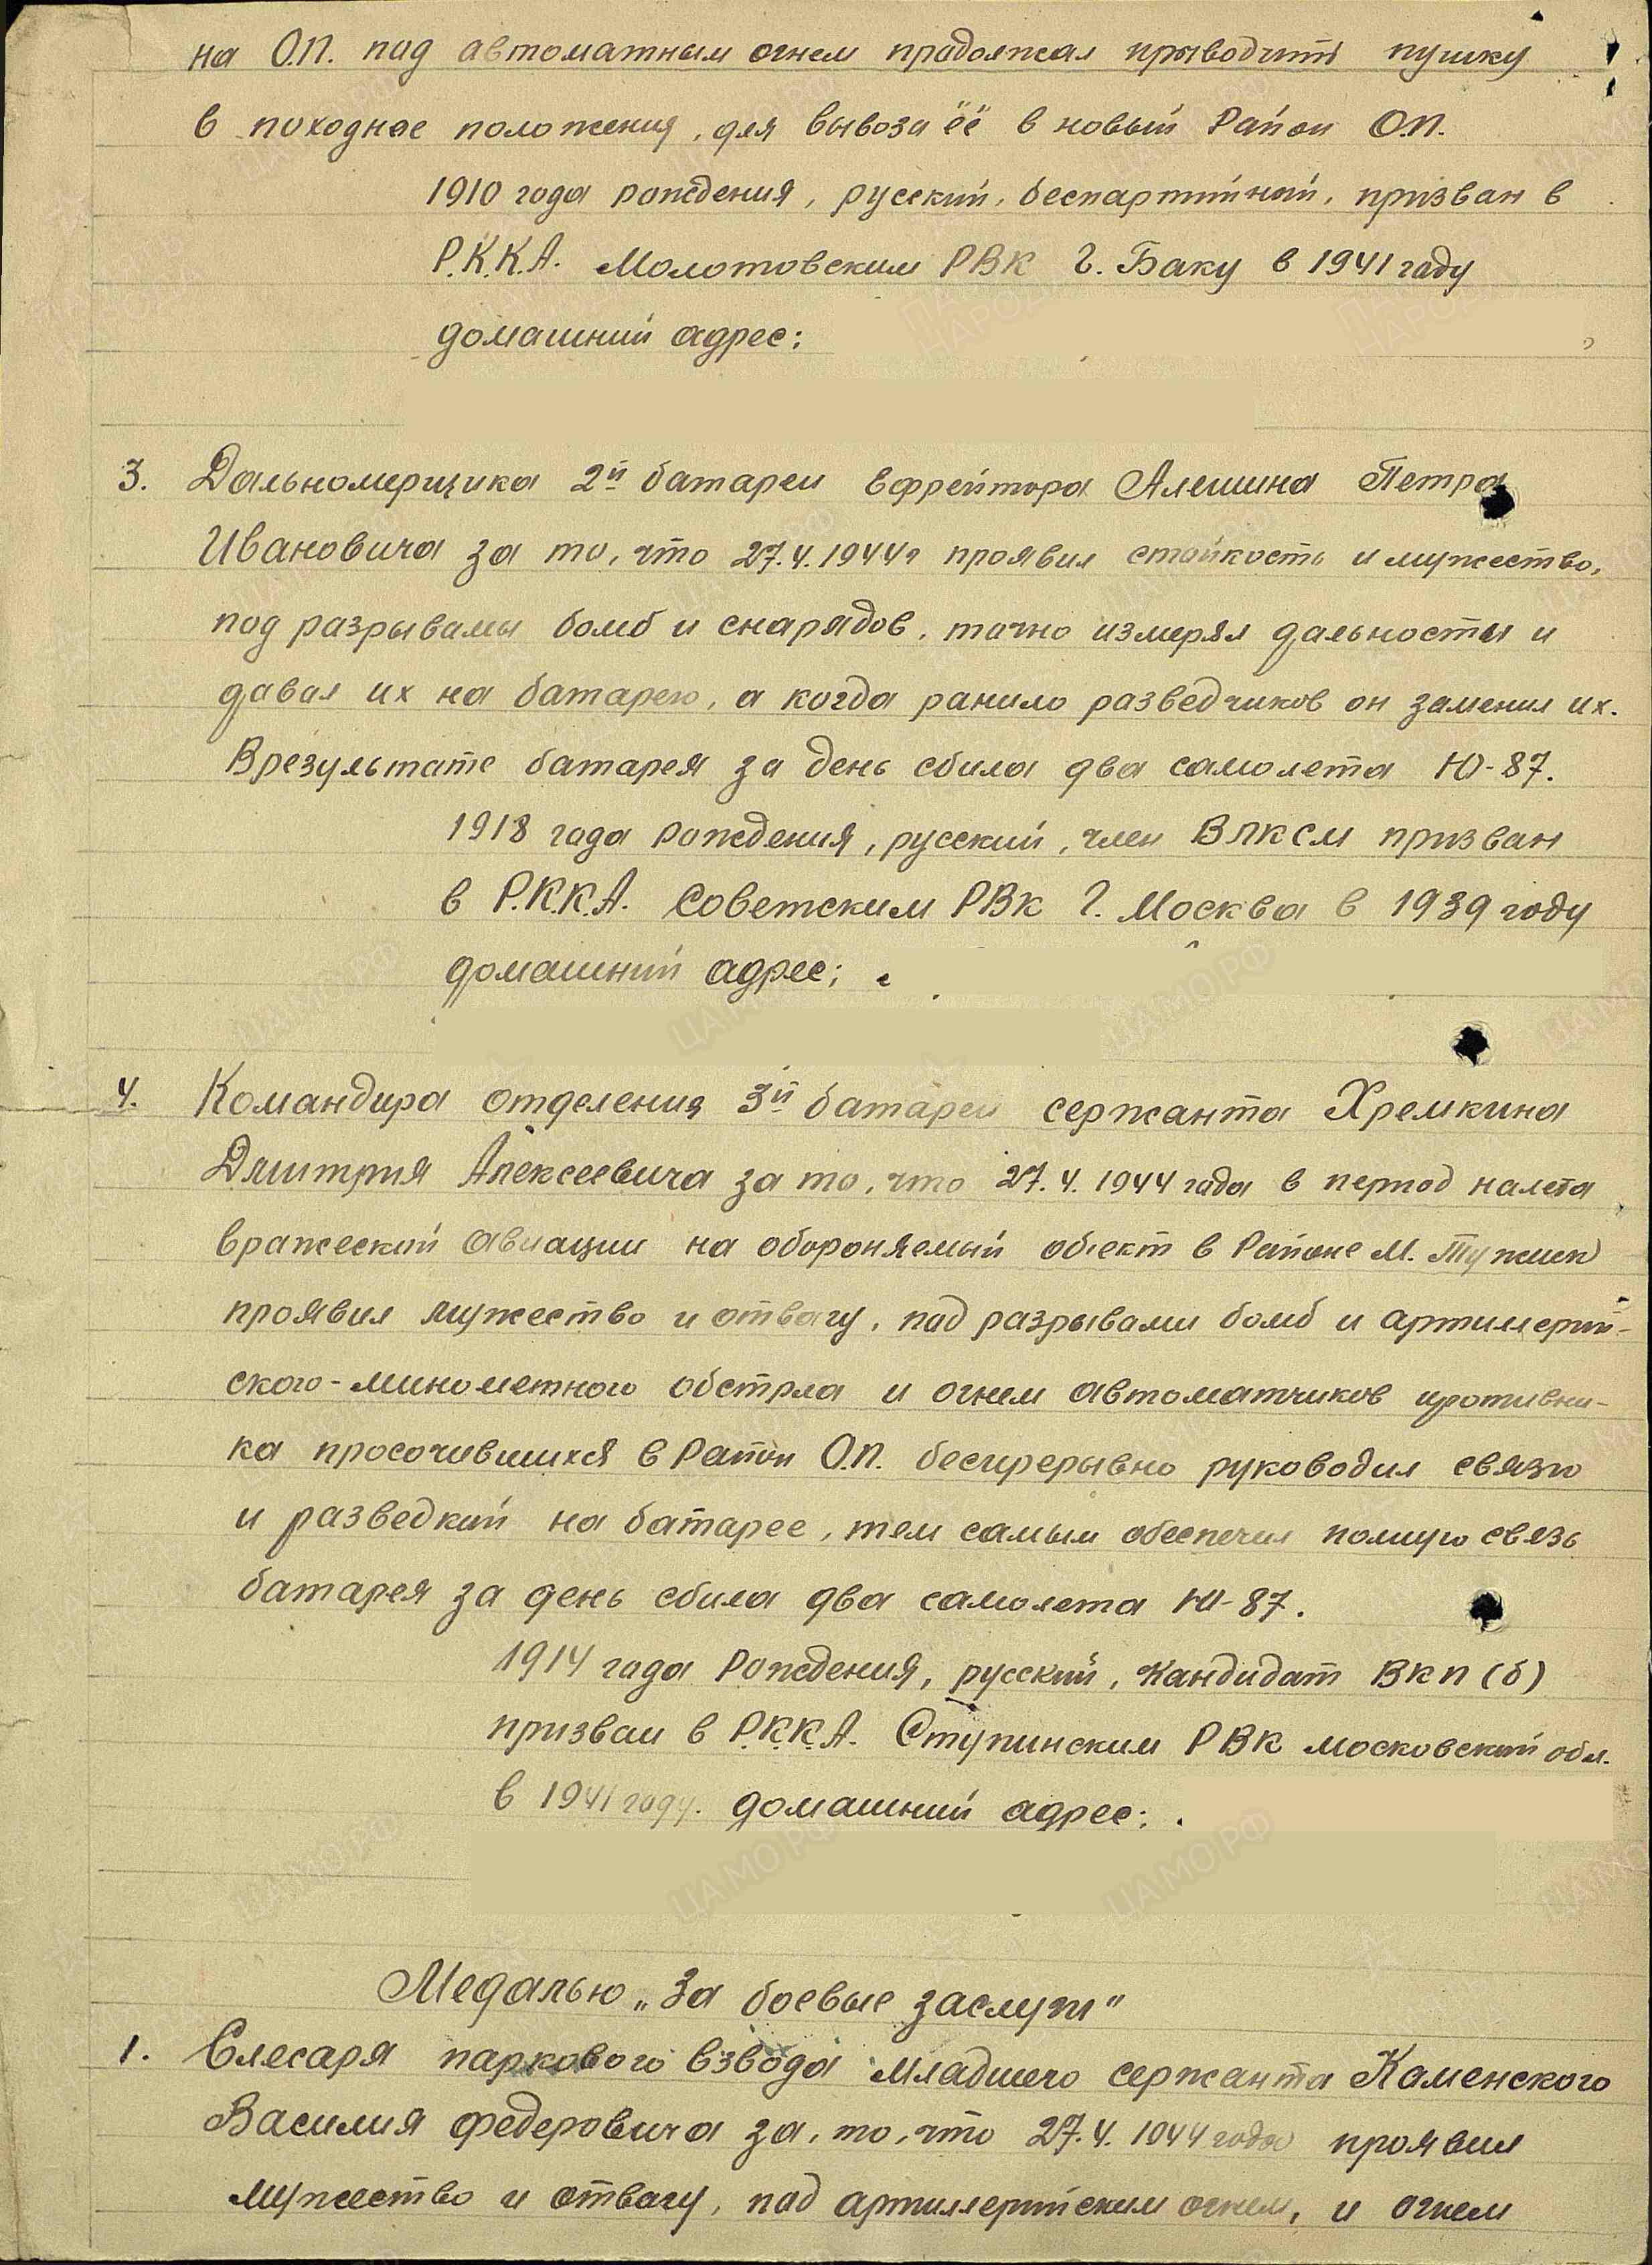 на О.П. под автоматным огнем продолжал приводить пушку
в походное положения, для вывоза её в новый Район О.П.
1910 года рождения, русский, беспартийный, призван в
Р.К.К.А. Молотовским РВК г. Баку в 1941 году
домашний адрес:
3. Дальномерщика 2й батареи Ефрейтора Алешина Петра
Ивановича за то, что 27.4.1944г проявил стойкость и мужество,
под разрывами бомб и снарядов, точно измерял дальносты и
давал их на батарею, а когда ранило разведчиков он заменил их.
Врезультате батарея за день сбила два самолета Ю-87.
1918 года рождения, русский, член ВЛКСМ призван
в Р.К.К.А. Советским РВК г. Москва в 1939 году
домашний адрес;
4. Командира отделения 3й батареи сержанта Хремкина
Дмитрия Алексеевича за то, что 27.4.1944 года в период налета
вражеский авиации на обороняемый обiект в Районе М.
проявил мужество и отвагу, под разрывами бомб и артиллерий-
ского-минометного обстрла и огнем автоматчиков противни-
ка просочившихся в Район О.П. беспрерывно руководил связю
и разведкий на батарее, тем самым обеспечил полную связь
батарея за день сбила два самолета Ю-87.
1914 года Рождения, русский, Кандидат ВКП(б)
призван в Р.К.К.А. Ступинским РВК московский обл.
в 1941 году. домашний адрес:
Медалью „За боевые заслуги"
1. Слесаря паркового взвода младшего сержанта Каменского
Василия Федеровича за, то, что 27.4.1944 года проявил
мужество и отвагу, под артиллерийским огнем, и огнем
ЦАМО.РФ